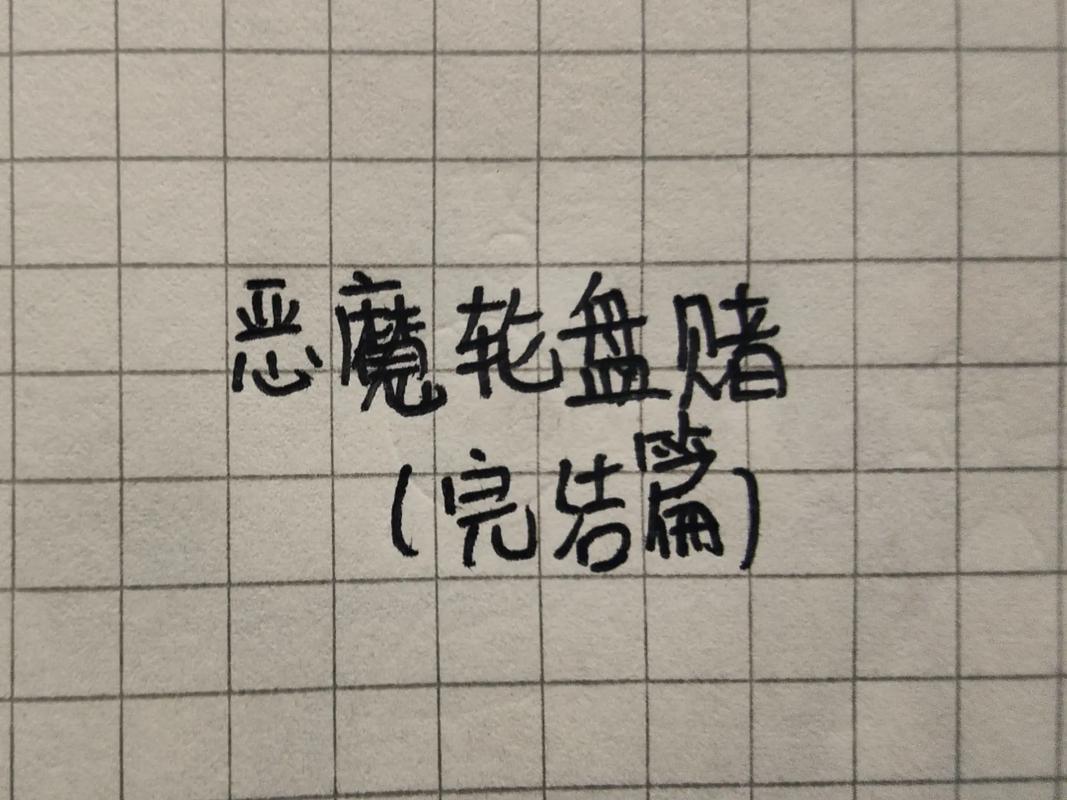 恶魔轮盘赌
(完结篇)